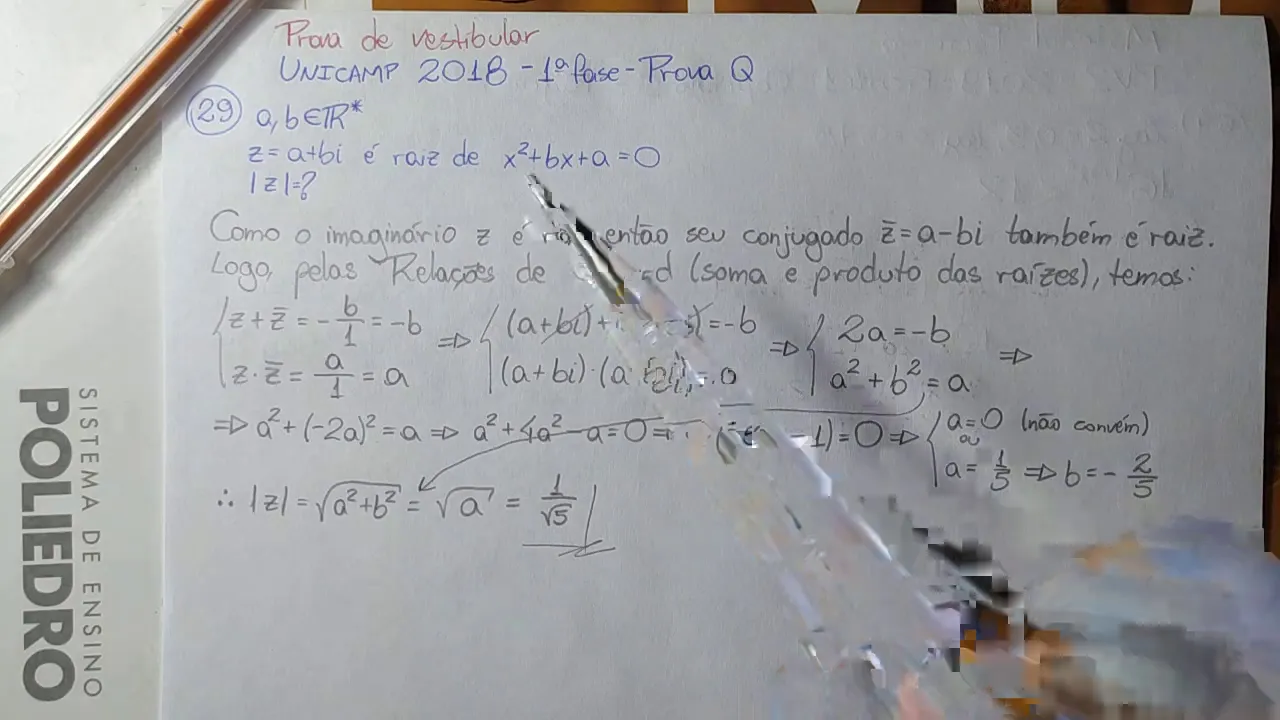 Prova de vestibular
UNICAMP 2018 - 1ª fase - Prova Q
29 a, b ∈ ℝ*
z = a+bi é raiz de x²+bx+a=0
|z|=?
Como o imaginário z é então seu conjugado z̄ = a-bi também é raiz.
Logo, pelas Relações de (soma e produto das raízes), temos:
{ z+z̄ = -b/1 = -b ⇒ { (a+bi)+ = -b ⇒ { 2a = -b ⇒
z·z̄ = a/1 = a (a+bi)·(a a² + b² = a
⇒ a² + (-2a)² = a ⇒ a² + 4a² - a = 0 ⇒ -1) = 0 ⇒ { a=0 (não convém)
ou
a = 1/5 ⇒ b = -2/5
∴ |z| = √(a²+b²) = √a = 1/√5
SISTEMA DE ENSINO
POLIEDRO